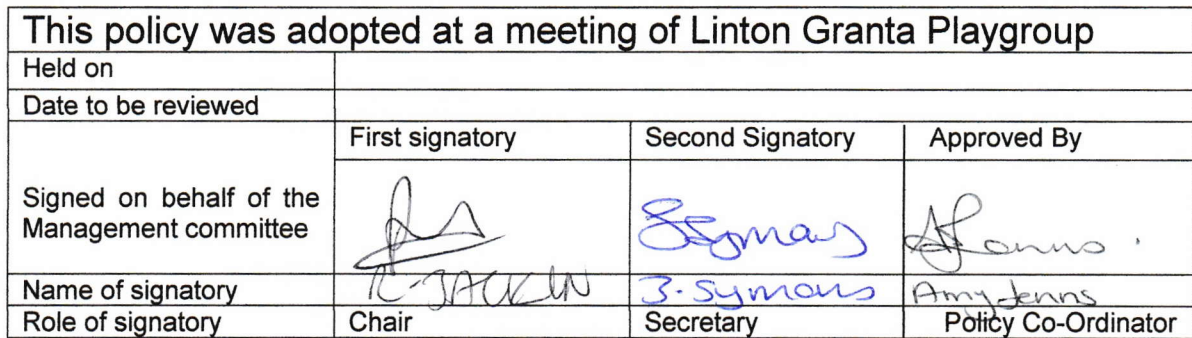 This policy was adopted at a meeting of Linton Granta Playgroup
Held on
Date to be reviewed
First signatory Second Signatory Approved By
Signed on behalf of the
Management committee
Name of signatory R-JACKLIN B. Symons Amy Jenns
Role of signatory Chair Secretary Policy Co-Ordinator